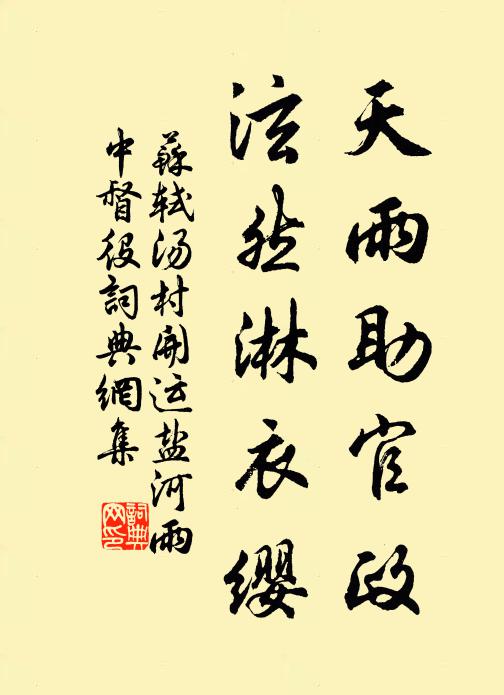 天雨助官政
泫然淋衣缨
蘇軾汤村開运盐河雨
中督役詞典網集
詞典
网印